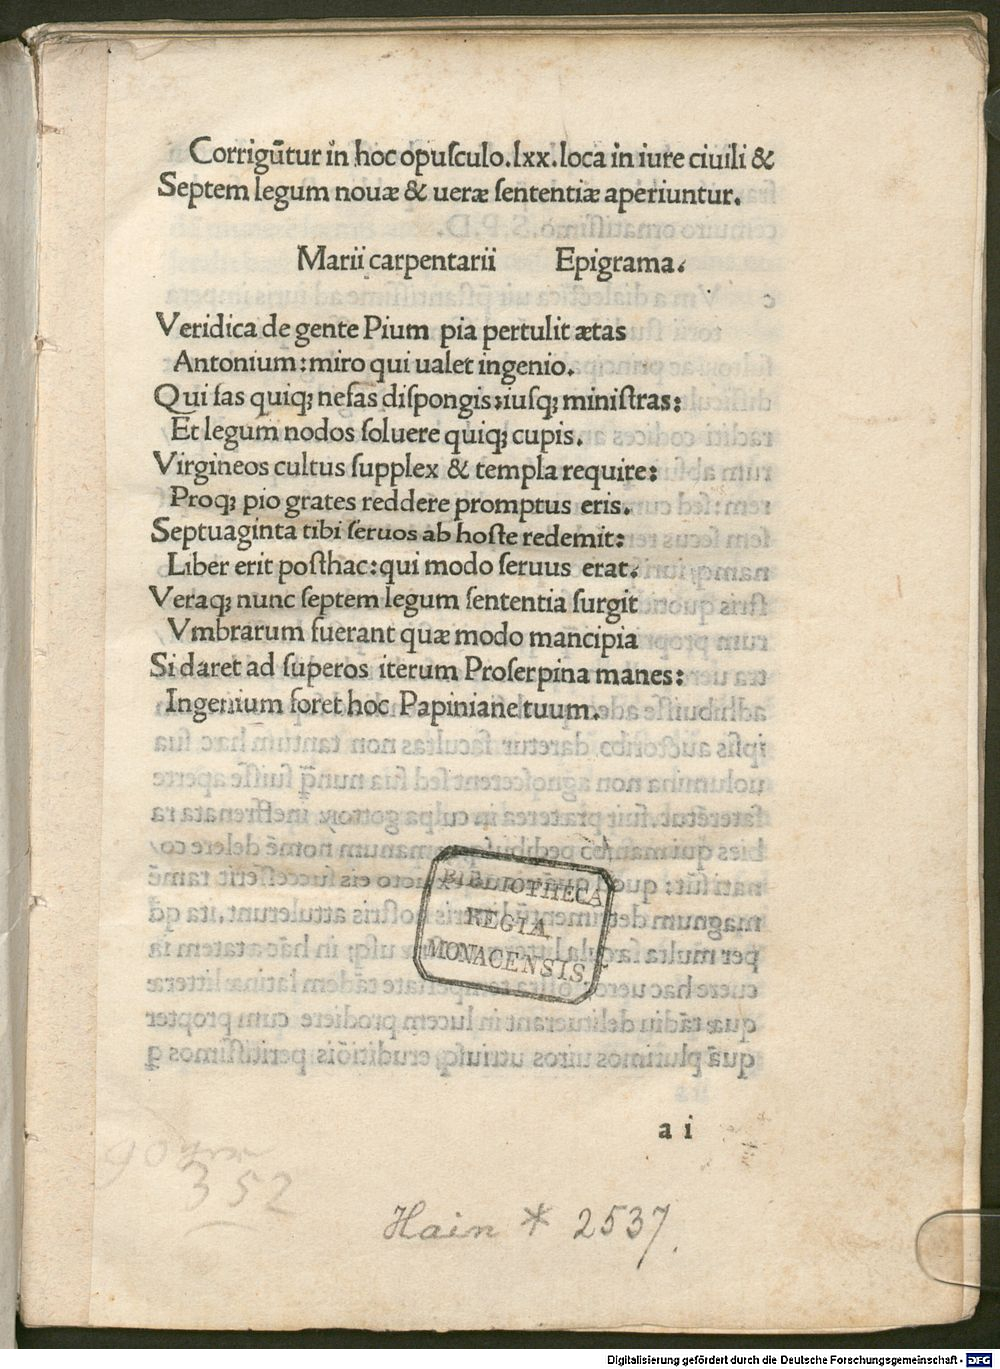 Corrigūtur in hoc opuſculo.lxx.loca in iure ciuili &
Septem legum nouæ & ueræ ſententiæ aperiuntur.
Marii carpentarii Epigrama.
Veridica de gente Pium pia pertulit ætas
Antonium:miro qui ualet ingenio.
Qui fas quiq; nefas diſpongis,iuſq; miniſtras:
Et legum nodos ſoluere quiq; cupis.
Virgineos cultus ſupplex & templa require:
Proq; pio grates reddere promptus eris.
Septuaginta tibi ſeruos ab hoſte redemit:
Liber erit poſthac:qui modo ſeruus erat.
Veraq; nunc ſeptem legum ſententia ſurgit
Vmbrarum fuerant quæ modo mancipia
Si daret ad ſuperos iterum Proſerpina manes:
Ingenium foret hoc Papiniane tuum.
BIBLIOTHECA
REGIA
MONACENSIS
a i
352
Hain * 2537.
Digitalisierung gefördert durch die Deutsche Forschungsgemeinschaft - DFG